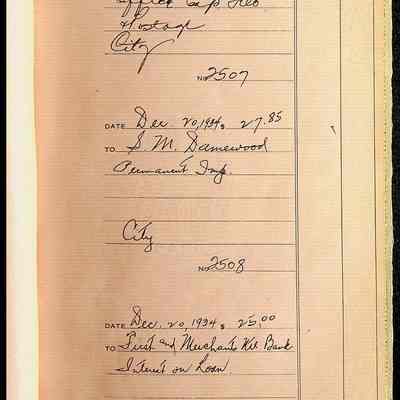 Office Exp
Postage
City
No 2507
DATE Dec. 20, 1934 $ 27.85
TO S. M. Damewood
Permanent Imp.
City
No 2508
DATE Dec. 20, 1934 $ 25.00
TO First and Merchants Nat Bank
Interest on Loan